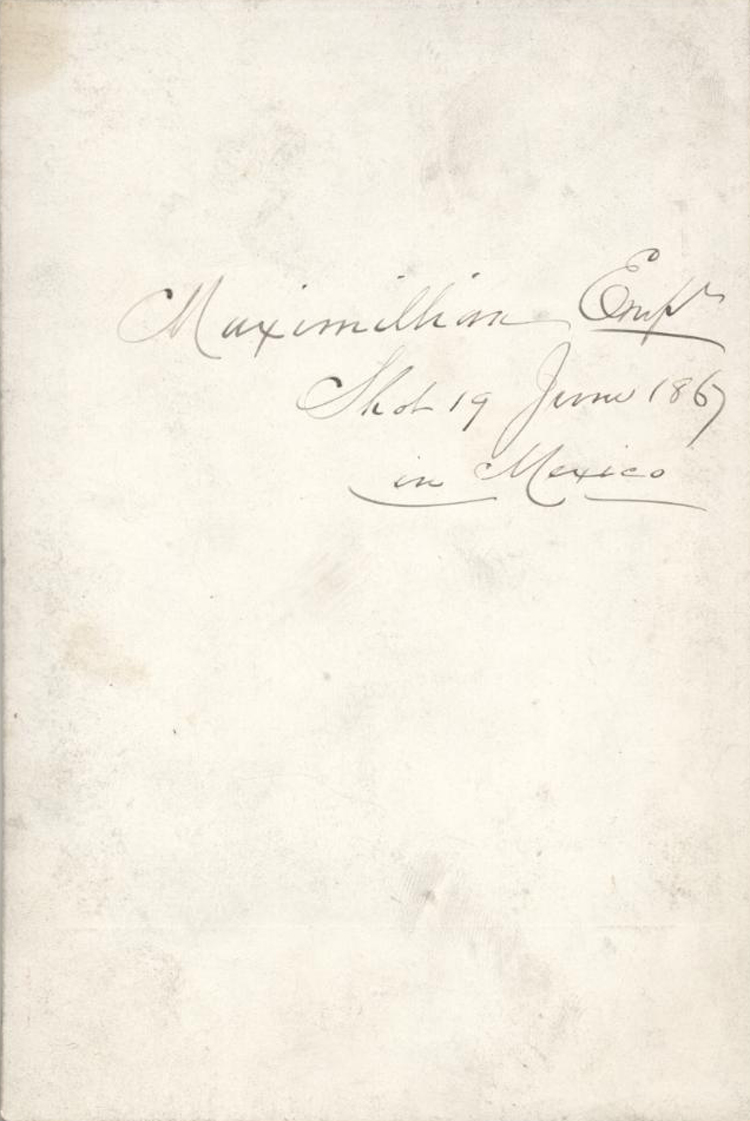 Maximillian Empr
Shot 19 June 1867
in Mexico